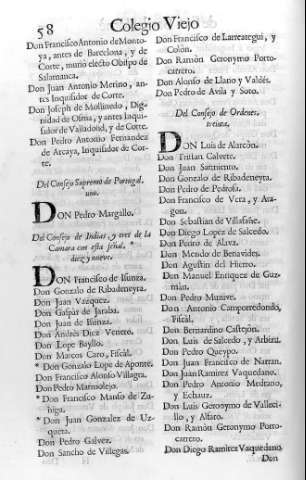 58
Colegio Viejo
Don Francisco Antonio de Monto-
ya, antes de Barcelona, y de
Corte, murió electo Obispo de
Salamanca.
Don Juan Antonio Merino, an-
tes Inquisidor de Corte.
Don Joseph de Mollinedo, Dig-
nidad de Osma, y antes Inqui-
sidor de Valladolid, y de Corte.
Don Pedro Antonio Fernandez
de Arcaya, Inquisidor de Cor-
te.
Del Consejo Supremo de Portugal,
uno.
DON Pedro Margallo.
Del Consejo de Indias, y tres de la
Camara con esta señal, *
diez y nueve.
DON Francisco de Isunza.
Don Gonzalo de Ribadeneyra.
Don Juan Vazquez.
Don Gaspar de Jaraba.
Don Juan de Isunza.
Don Andrés Diez Venero.
Don Lope Bayllo.
Don Marcos Caro, Fiscàl.
* Don Gonzalo Lope de Aponte.
Don Francisco Alonso Villagra.
Don Pedro Marmolejo.
* Don Francisco Manso de Zu-
ñiga.
* Don Juan Gonzalez de Uz-
queta.
Don Pedro Galvez.
Don Sancho de Villegas.
Don Francisco de Larreategui, y
Colòn.
Don Ramòn Geronymo Porto-
carrero.
Don Alonso de Llano y Valdés.
Don Pedro de Avila y Soto.
Del Consejo de Ordenes,
treinta.
DON Luis de Alarcòn.
Don Tristan Calvete.
Don Juan Sarmiento.
Don Gonzalo de Ribadeneyra.
Don Pedro de Pedrosa.
Don Francisco de Vera, y Ara-
gon.
Don Sebastian de Villafañe.
Don Diego Lopez de Salcedo.
Don Pedro de Alava.
Don Mendo de Benavides.
Don Agustin del Hierro.
Don Manuel Enriquez de Guz-
man.
Don Pedro Munive.
Don Antonio Camporredondo,
Fiscàl.
Don Bernardino Castejòn.
Don Luis de Salcedo, y Arbizu.
Don Pedro Queypo.
Don Juan Francisco de Narran.
Don Juan Ramirez Vaquedano.
Don Pedro Antonio Medrano,
y Echauz.
Don Luis Geronymo de Valleci-
llo, y Alfaro.
Don Ramòn Geronymo Porto-
carrero.
Don Diego Ramirez Vaquedano
Don